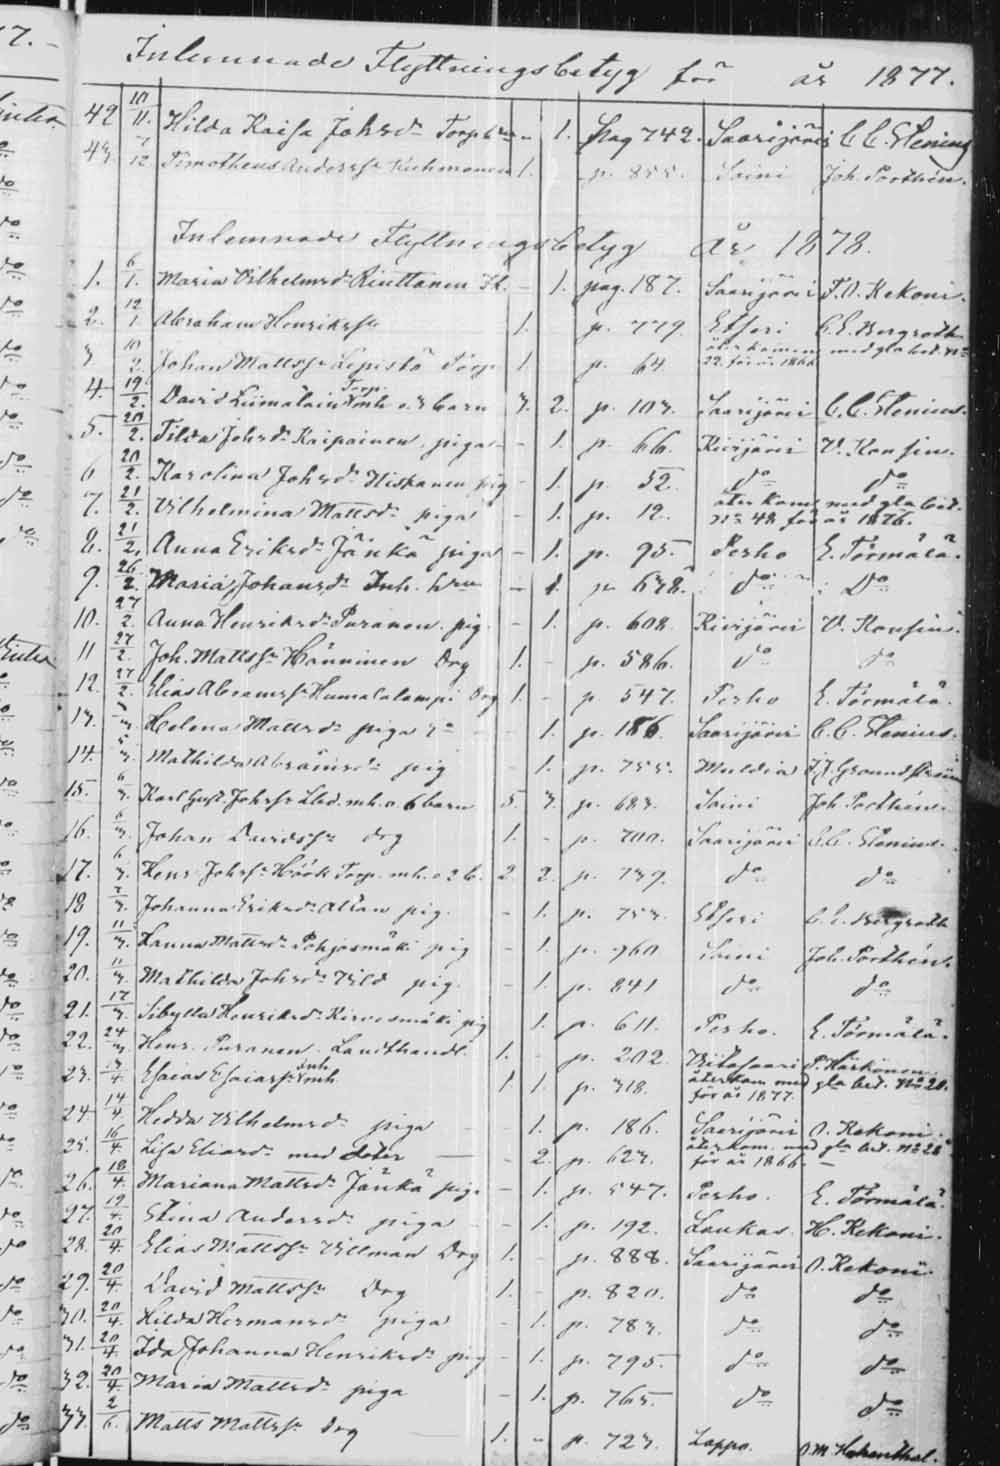 Inlemnade Flyttningsbetyg för år 1877.
42 10/11. Hilda Kaisa Johsdr Torp - 1. pag 742. Saarijärvi C. C. Stenius
43. 7/12 Timotheus Anderss. 1. p. 855. Soini Joh. Porthén.
Inlemnade Flyttningsbetyg År 1878.
1. 6/1. Maria Vilhelmsdr Rinttanen - 1. pag. 187. Saarijärvi O. Rekoni.
2. 12/1 Abraham Henrikss. 1. p. 779. Etseri C. E. Bergroth
3 10/2. Johan Mattss. Lepistö Torp 1 p. 64. återkommen med gla bet. No 22 för år 1866
4. 19/2. David Liimatain Torp. mh. o. 3 barn 3. 2. p. 103. Saarijärvi C. C. Stenius.
5. 20/2. Tilda Johsdr Kaipainen piga - 1. p. 66. Kivijärvi V. Konsin.
6 20/2. Karolina Johsdr Hiskanen pig - 1. p. 52. do do
7. 21/2. Vilhelmina Mattsdr piga - 1. p. 12. återkom med gla bet. No 48 för år 1876.
8. 21/2. Anna Eriksdr Jänkä piga - 1. p. 95. Perho E. Törmälä.
9. 26/2. Maria Johansdr Inh. hru - 1. p. 638. do Do
10. 27/2. Anna Henriksdr Puranen pig. - 1. p. 608. Kivijärvi V. Konsin.
11 27/2. Joh. Mattss. Hänninen Drg 1. - p. 586. do do
12. 27/2. Elias Abramss. Humalalampi Drg 1. - p. 547. Perho E. Törmälä.
13. Helena Mattsdr piga - 1. p. 186. Saarijärvi C. C. Stenius.
14. 5/3. Mathilda Abramsdr pig - 1. p. 755. Multia Groundström
15. 6/3. Karl Gust. Johss. mh. o. 6 barn 5. 3. p. 683. Soini Joh. Porthén.
16. 6/3. Johan Davidss. drg 1. - p. 700. Saarijärvi C. C. Stenius.
17. 6/3. Henr. Johss. Höök Torp. mh. o 2 b. 2 2. p. 739. do do
18 7/3. Johanna Eriksdr Allan pig. - 1. p. 753. Etseri C. E. Bergroth
19. 11/3. Sanna Mattsdr Pohjosmäki pig - 1. p. 960 Soini Joh. Porthén.
20. 11/3. Mathilda Johsdr Vild pig. - 1. p. 841 do do
21. 17/3. Sibylla Henriksdr Kirvesmäki pig 1. p. 611. Perho. E. Törmälä.
22. 24/3. Henr. Puranen Landthandl. 1. - p. 202. Viitasaari P. Härkönen
23. 3/4 Esaias Esaiass. Inh. mh. 1 1. p. 318. återkom med gla bet. No 20. för år 1877.
24 14/4. Hedda Vilhelmsdr piga - 1. p. 186. Saarijärvi O. Rekoni
25. 16/4. Lisa Eliasdr med doter - 2. p. 623. återkom. med gla bet. No 28 för år 1866.
26. 18/4. Mariana Mattsdr Jänkä pig. - 1. p. 547. Perho. E. Törmälä.
27. 19/4. Stina Andersdr piga - 1. p. 192. Laukas. H. Rekoni.
28. 20/4. Elias Mattss. Villman Drg 1. - p. 888. Saarijärvi O. Rekoni.
29. 20/4. David Mattss. drg 1. - p. 820. do do
30. 20/4. Hilda Hermansdr piga - 1. p. 783. do do
31. 20/4. Ida Johanna Henriksdr pig - 1. p. 795. do do
32. 20/4. Maria Mattsdr piga - 1. p. 765. do do
33. 2/6. Matts Mattss. drg 1. - p. 723. Lappo.